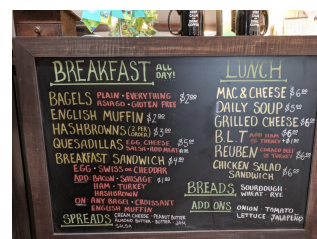 BREAKFAST ALL DAY!
BAGELS PLAIN · EVERYTHING ASIAGO · GLUTEN FREE
ENGLISH MUFFIN $2.00
HASHBROWNS (2 PER ORDER) $3.00
QUESADILLAS EGG, CHEESE
SALSA · ADD MEAT
BREAKFAST SANDWICH
EGG · SWISS OR CHEDDAR
ADD: BACON · SAUSAGE
HAM · TURKEY
HASHBROWN
ON: ANY BAGEL · CROISSANT
ENGLISH MUFFIN
SPREADS CREAM CHEESE · PEANUT BUTTER
ALMOND BUTTER · BUTTER · JAM
SALSA
LUNCH
MAC & CHEESE
DAILY SOUP
GRILLED CHEESE
B.L.T ADD HAM
OR TURKEY
REUBEN CORNED BEEF
OR TURKEY
CHICKEN SALAD
SANDWICH
BREADS, SOURDOUGH
WHEAT · RYE
ADD ONS ONION · TOMATO
LETTUCE JALAPEÑO